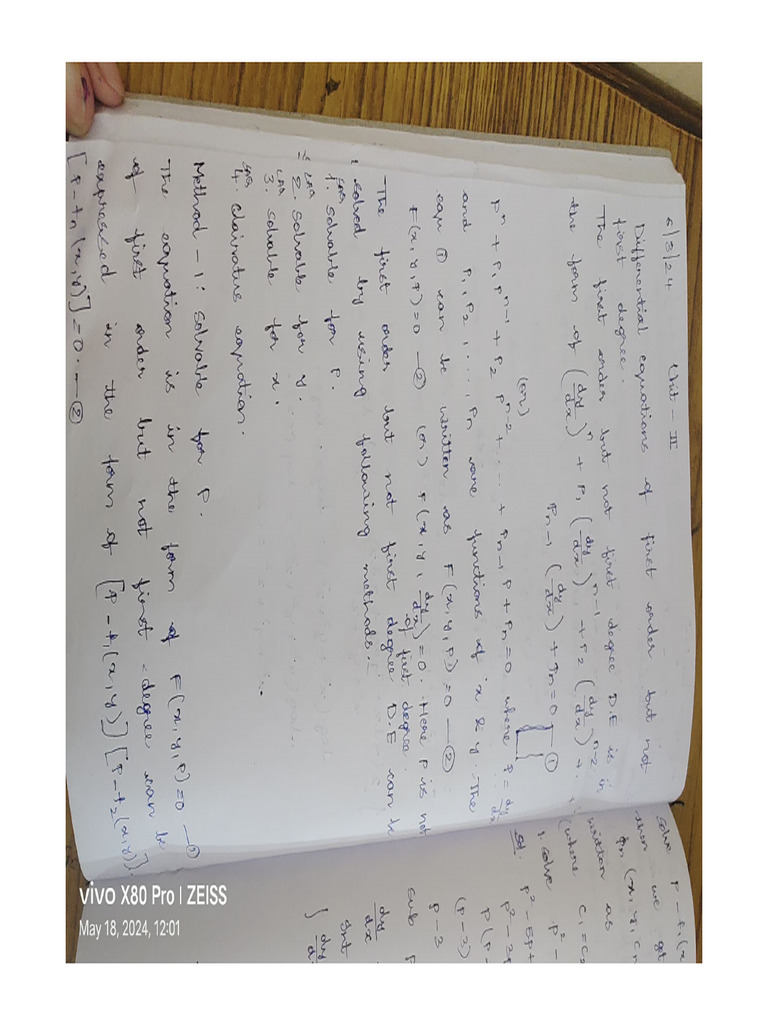 6/3/24 Unit - II
Differential equations of first order but not
first degree.
The first order but not first degree D.E is in
the form of (dy/dx)^n + P1 (dy/dx)^n-1 + P2 (dy/dx)^n-2 + ..
Pn-1 (dy/dx) + Pn = 0 — ①
(or)
p^n + P1 p^n-1 + P2 p^n-2 + ... + Pn-1 P + Pn = 0 where P = dy/dx
and P1, P2, ..., Pn are functions of x & y. The
eqn ① can be written as F(x, y, P) = 0 — ②
F(x, y, P) = 0 — ② (or) F(x, y, dy/dx) = 0. Here P is not
of first degree.
The first order but not first degree D.E can be
solved by using following methods.
1. solvable for P.
2. solvable for y.
3. solvable for x.
4. clairatus equation.
Method - 1: solvable for P.
The equation is in the form of F(x, y, P) = 0 — ①
of first order but not first - degree can be
expressed in the form of [P - f1(x, y)] [P - f2(x, y)] .
[P - fn(x, y)] = 0. — ②
solve P - f1(x
then we get
fn (x, y, cn
written as
(where c1 = c2
1. solve p² -
Sol. p² - 5p +
p² - 3p
p(p -
(p - 3)
p - 3
sub p
dy/dx
Int
∫ dy/d
vivo X80 Pro | ZEISS
May 18, 2024, 12:01